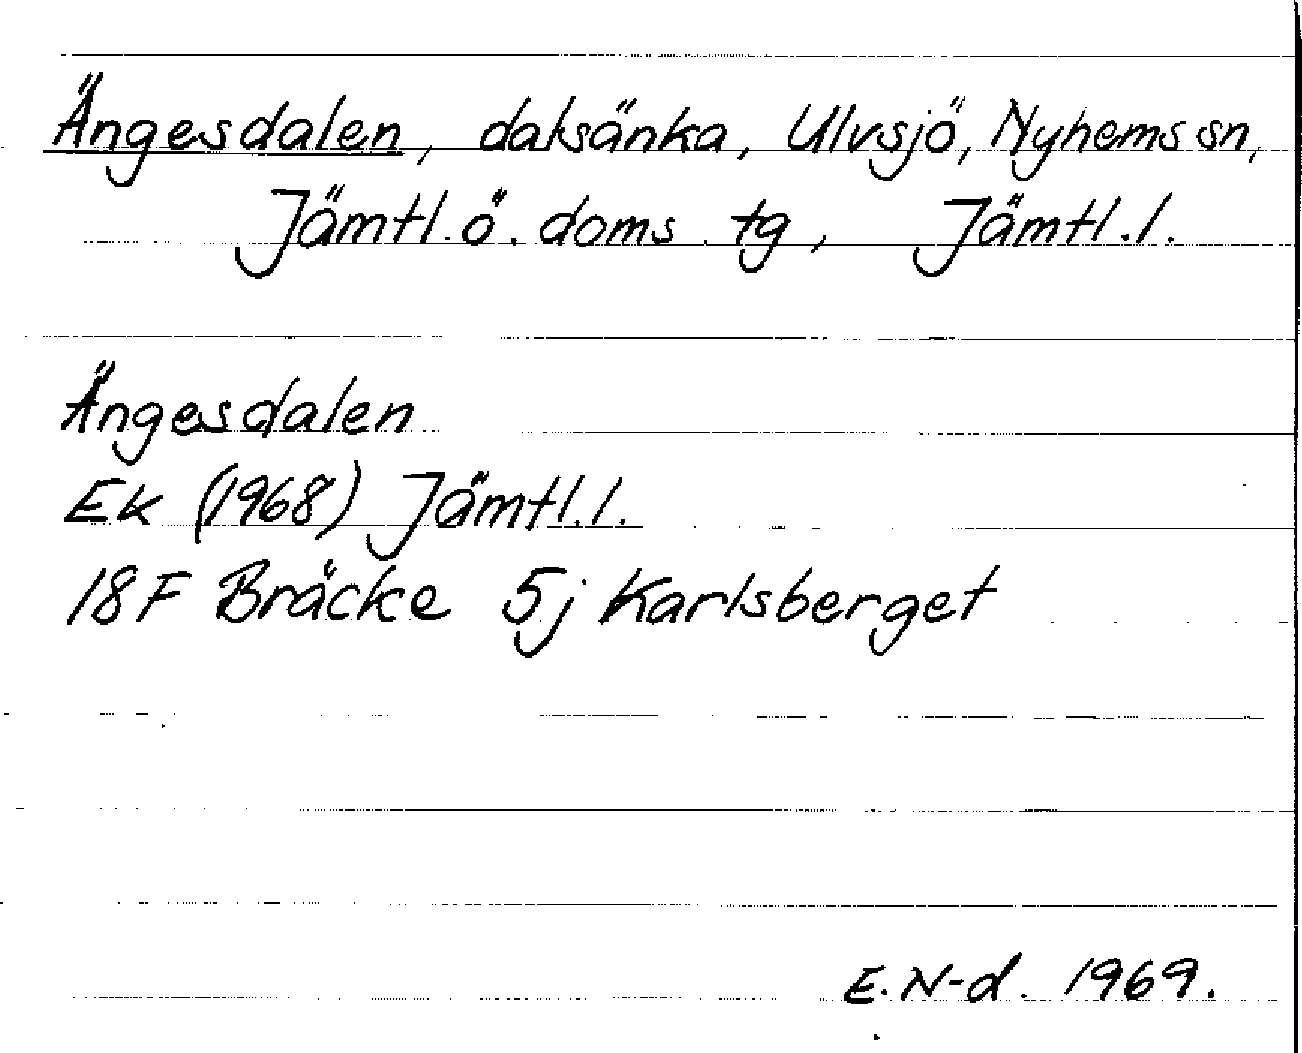 Ängesdalen, dalsänka, Ulvsjö, Nyhems sn,
Jämtl. ö. doms. tg, Jämtl. l.
Ängesdalen
Ek (1968) Jämtl. l.
18F Bräcke 5j Karlsberget
E. N-d. 1969.